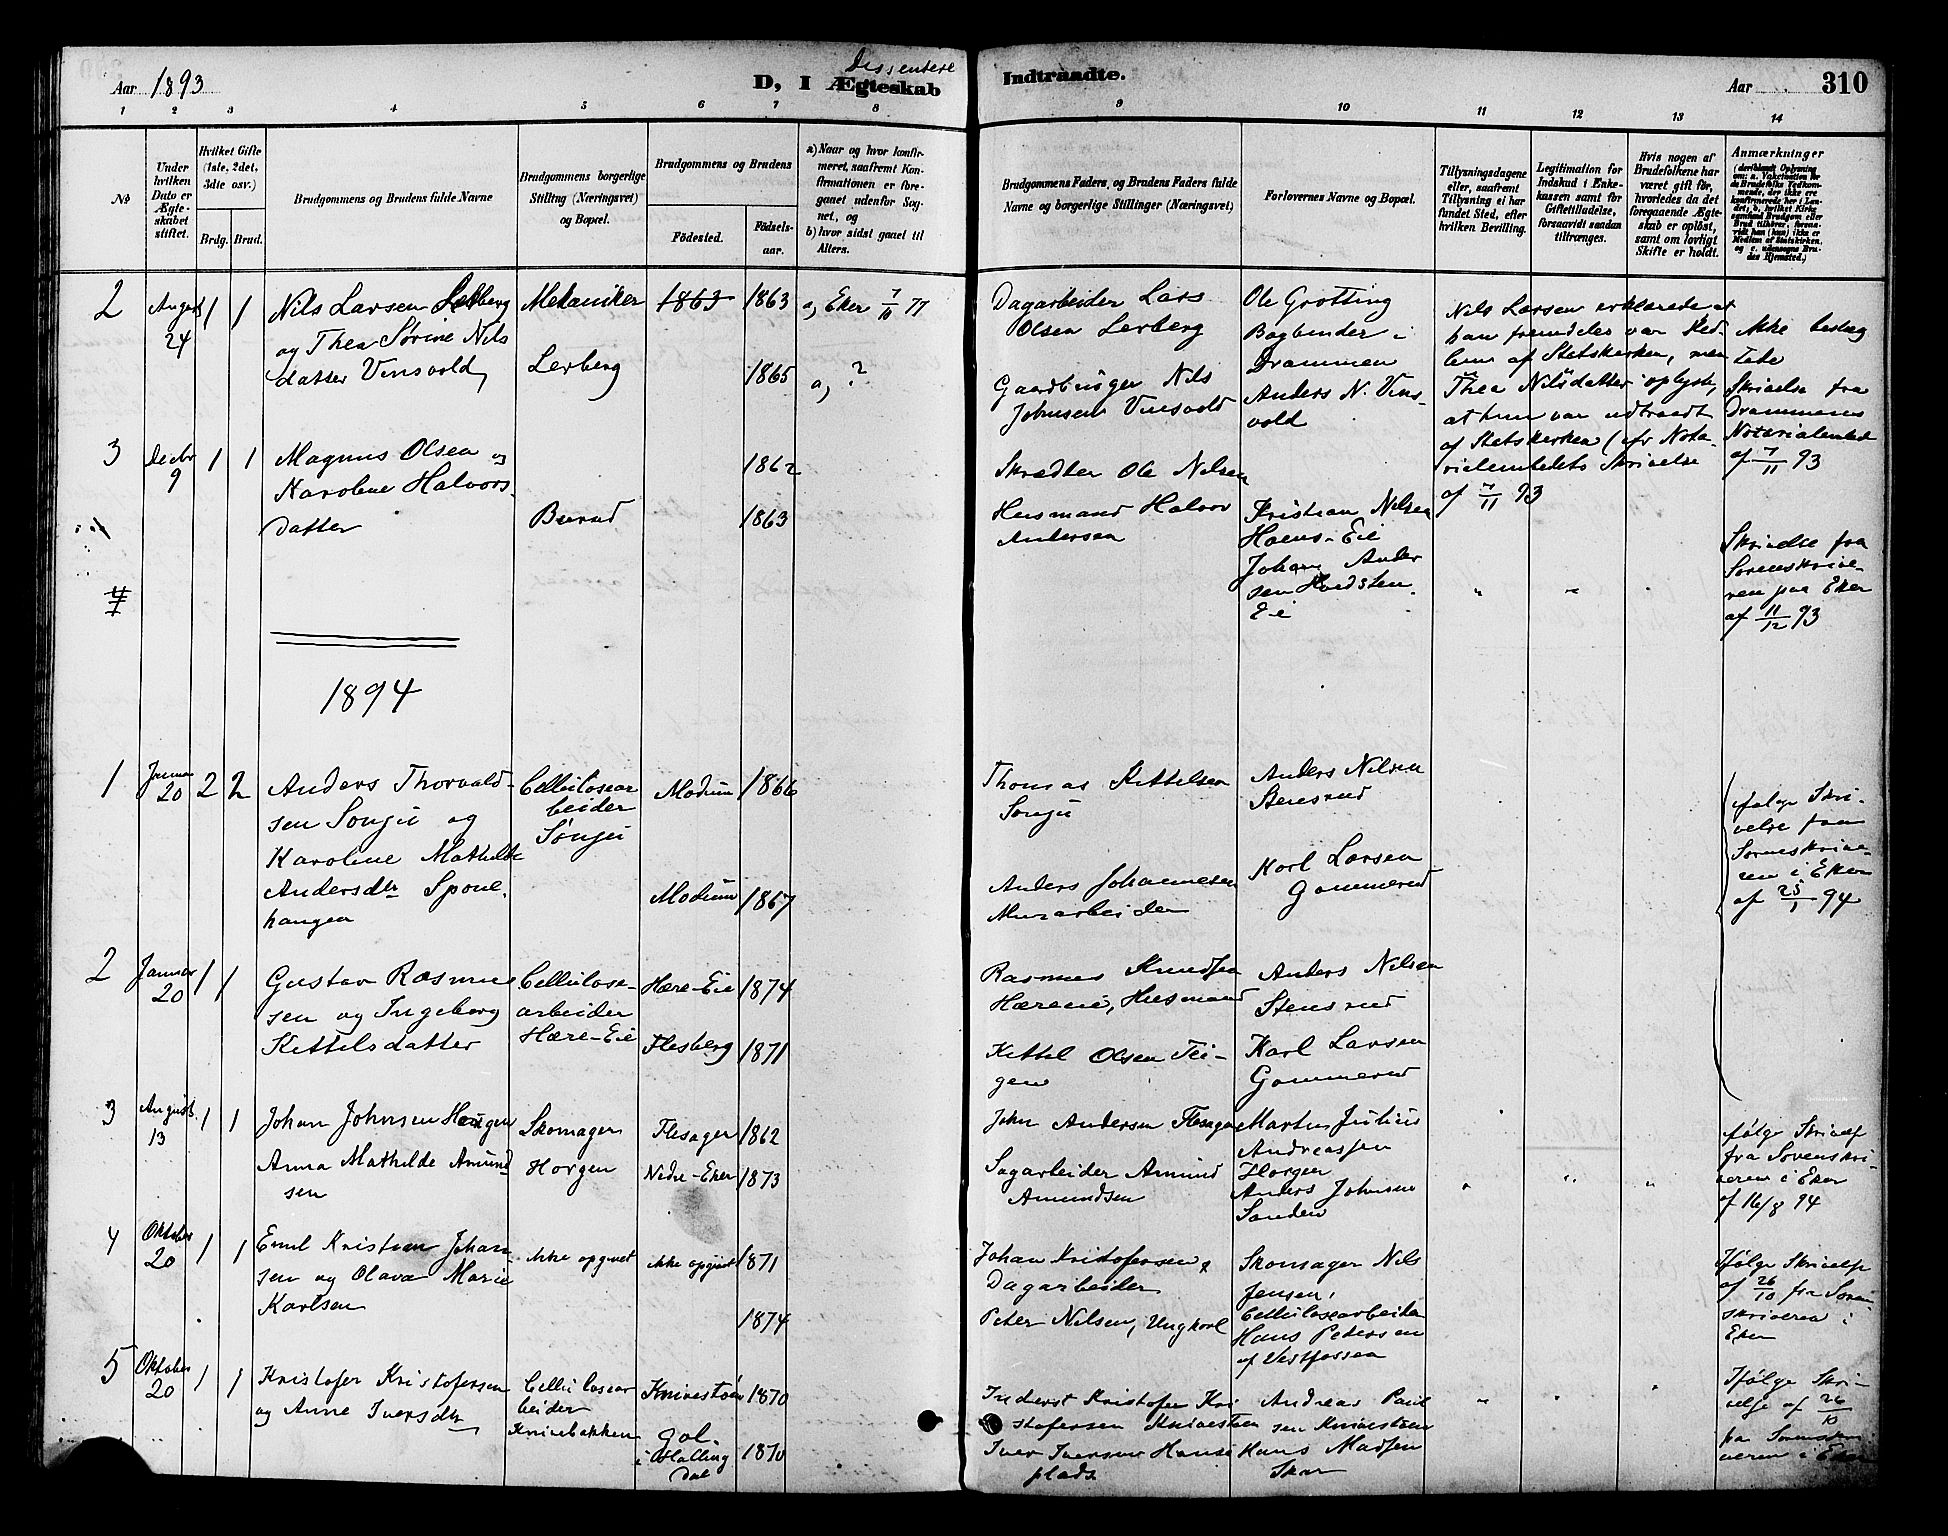 Aar 1893
Dissentere
D, I Ægteskab
Indtraadte.
Aar
310
1 2 3 4 5 6 7 8 9 10 11 12 13 14
No
Under
hvilken
Dato er
Ægte-
skabet
stiftet.
Hvilket Gifte
(1ste, 2det,
3die osv.)
Brdg. Brud.
Brudgommens og Brudens fulde Navne
Brudgommens borgerlige
Stilling (Næringsvei)
og Bopæl.
Brudgommens og Brudens
Fødested.
Fødsels-
aar.
a) Naar og hvor konfir-
meret, saafremt Kon-
firmationen er fore-
gaaet udenfor Sog-
net, og
b) hvor sidst gaaet til
Alters.
Brudgommens Faders, og Brudens Faders fulde
Navne og borgerlige Stillinger (Næringsvei)
Forlovernes Navne og Bopæl.
Tillysningsdagene
eller, saafremt
Tillysning ei har
fundet Sted, efter
hvilken Bevilling.
Legitimation for
Indskud i Enke-
kassen samt for
Giftetilladelse,
forsaavidt saadan
tiltrænges.
Hvis nogen af
Brudefolkene har
været gift før,
hvorledes da det
foregaaende Ægte-
skab er opløst,
samt om lovligt
Skifte er holdt.
Anmærkninger
(deriblandt Oplysning
om: a. Vaccination for
de Brudefolks Vedkom-
mende, der ikke ere
konfirmerede her i Lan-
det; b. hvilket Kirke-
samfund Brudgom eller
Brud tilhører, forsaa-
vidt han (hun) ikke er
Medlem af Statskirken,
og c. udensogns Bru-
des Hjemsted.)
2
August
24
1 1
Nils Larsen Lerberg
og Thea Sørine Nils
datter Vinsvold,
Mekaniker
Lerberg
1863 1863
1865
a, Eker 7/10 77
a, ?
Dagarbeider Lars
Olsen Lerberg
Gaardbruger Nils
Johnsen Vinsvold
Ole Grotting
Bogbinder i
Drammen
Anders N. Vins-
vold
Nils Larsen erklærede at
han fremdeles var Med-
lem af Statskirken, men
Thea Nilsdatter oplyste,
at hun var udtraadt
af Statskirken (cfr Nota-
rialembedets Skrivelse
af 7/11 93
Ikke
Skrivelse fra
Drammens
Notarialembed
af 7/11 93
3
Decbr
9
1 1
Magnus Olsen og
Karoline Halvors-
datter
Berud
1862
1863
Skrædder Ole Nilsen
Husmand Halvor
Andersen
Kristian Nilsen
Hoens-Eie
Johan Ander
sen Hvidsten
Eie
" " "
Skrivelse fra
Sorenskrive-
ren paa Eker
af 11/12 93
4
1894
1
Januar
20
2 2
Anders Thorvald-
sen Sonju og
Karoline Mathilde
Andersdtr Spone-
haugen
Cellulosear
beider
Sønju
Modum 1866
Modum 1867
Thomas Kittelsen
Sonju
Anders Johannesen
Murarbeider
Anders Nilsen
Stensrud
Karl Larsen
Gommerud
ifølge Skri-
velse fra
Sorenskrive-
ren i Eker
af 25/1 94
2
Januar
20
1 1
Gustav Rasmus
sen og Ingeborg
Kittelsdatter
Cellulose-
arbeider
Hære-Eie
Hære-Eie 1874
Flesberg 1871
Rasmus Knudsen
Hæreeie, Husmand
Kittel Olsen Tei-
gen
Anders Nilsen
Stensrud
Karl Larsen
Gommerud
3
August
13
1 1
Johan Johnsen Horgen
Anna Mathilde Amund
sen
Skomager
Horgen
Flesager 1862
Nedre-Eker 1873
John Andersen Flesager
Sagarbeider Amund
Amundsen
Martin Julius
Andreassen
Horgen
Anders Johnsen
Sanden
" " "
ifølge Skrivelse
fra Sorenskri-
veren i Eker
af 16/8 94
4
Oktober
20
1 1
Emil Kristian Johan-
sen og Olava Marie
Karlsen
ikke opgivet
ikke opgivet 1871
1874
Johan Kristofersen,
Dagarbeider
Peter Nilsen, Ungkarl
Skomager Nils
Jensen,
Cellulosearbeider
Hans Petersen
af Vestfossen
Ifølge Skrivelse
af 26/10 fra Soren
skriveren i
Eker
5
Oktober
20
1 1
Kristofer Kristofersen
og Anne Iversdtr
Cellulosear
beider
Knivebakken
Knivestøen 1870
Gol
i Halling
dal 1870
Inderst Kristofer Kri
stofersen Knivestøen
Iver Iversen Hanse
plads
Andreas Paul
sen Knivestøen
Hans Madsen
Skar
" " "
Ifølge Skri-
velse af 26/10
fra Sorenskri
veren i Eker